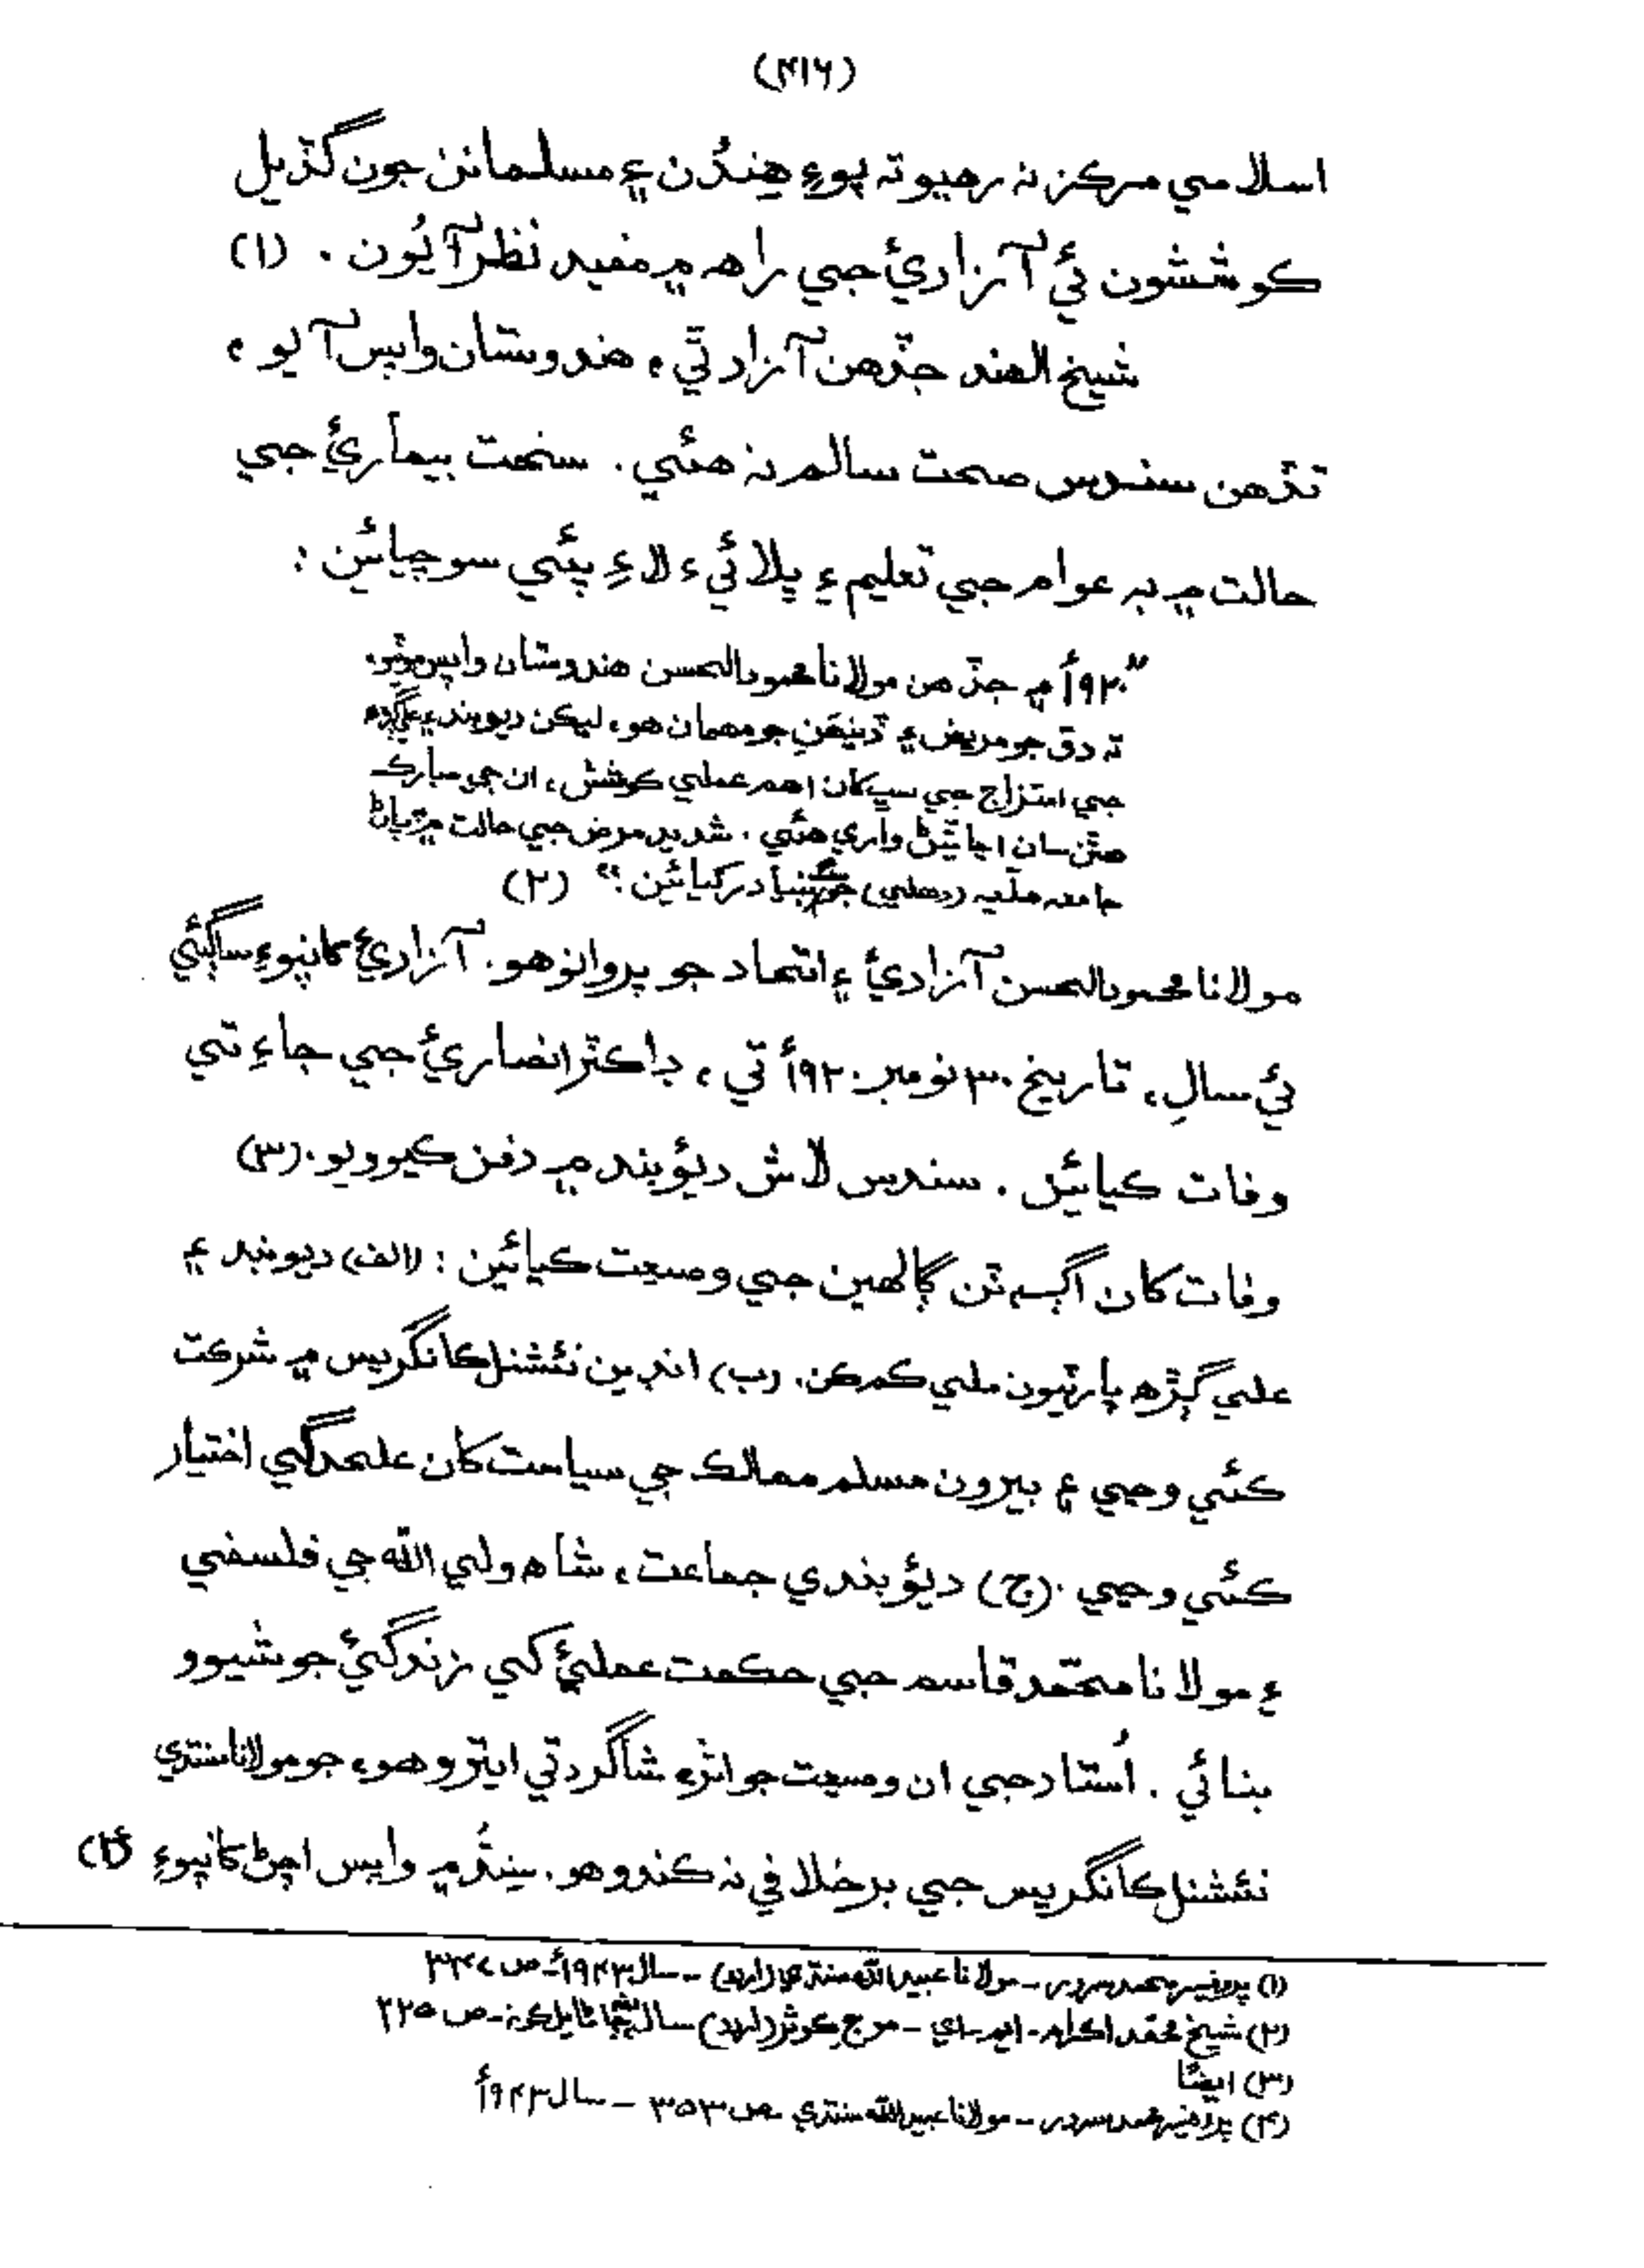 (۴۱۶)
اسلامي مرڪز نہ رهيو تہ پوءِ هِندُن ۽ مسلمانن جون گڏيل
ڪوششون ئي آزاديءَ جي راهہ ۾ مفيد نظر آيُون. (۱)
شيخ الهند جڏهن آزاد ٿي، هندوستان واپس آيو،
تڏهن سندس صحت سالم نہ هئي. سخت بيماريءَ جي
حالت ۾ بہ عوام جي تعليم ۽ ڀلائيءَ لاءِ پئي سوچيائين:
”۱۹۲۰ع ۾ جڏهن مولانا محمود الحسن هندوستان واپس موٽيو،
تہ دق جو مريض ۽ ڏينهَن جو مهمان هو، ليڪن ديوبند ۽ عليگڙهہ
جي امتزاج جي سڀ کان اهم عملي ڪوشش، ان جي مبارڪ
هٿن سان اچڻي واري هئي. شديد مرض جي حالت ۾ پاڻ
جامعہ مليّہ (دهلي) جو بنياد رکيائين.“ (۲)
مولانا محمود الحسن آزاديءَ ۽ اتحاد جو پروانو هو. آزاديءَ کانپوءِ ساڳئي
ئي سالِ، تاريخ ۳۰ نومبر ۱۹۲۰ع تي، ڊاڪٽر انصاريءَ جي جاءِ تي
وفات ڪيائين. سندس لاش ديوبند ۾ دفن ڪيو ويو. (۳)
وفات کان اڳ ۾ ٽن ڳالهين جي وصيت ڪيائين: (الف) ديوبند ۽
علي ڳڙهہ پارٽيون ملي ڪم ڪن. (ب) انڊين نئشنل ڪانگريس ۾ شرڪت
ڪئي وڃي ۽ بيرون مسلم ممالڪ جي سياست کان علحدگي اختيار
ڪئي وڃي. (ج) ديوبندي جماعت، شاهہ ولي الله جي فلسفي
۽ مولانا محمّد قاسم جي حڪمت عمليءَ کي زندگيءَ جو شيوو
بنائي. اُستاد جي ان وصيت جو اثر، شاگرد تي ايترو هو، جو مولانا سنڌي
نئشنل ڪانگريس جي برخلافي نہ ڪندو هو. سِنڌُ ۾ واپس اچڻ کانپوءِ (۴)
(۱) پروفيسر محمد سرور - مولانا عبيدالله سنڌي (اردو) - سال ۱۹۴۳ع - ص ۳۴۷
(۲) شيخ محمّد اڪرام - ايم - اي - موج ڪوثر (اردو) سال ڇاپايل ڪونہ - ص ۲۲۵
(۳) ايضًا
(۴) پروفيسر محمد سرور - مولانا عبيدالله سنڌي - ص ۳۵۳ - سال ۱۹۴۳ع